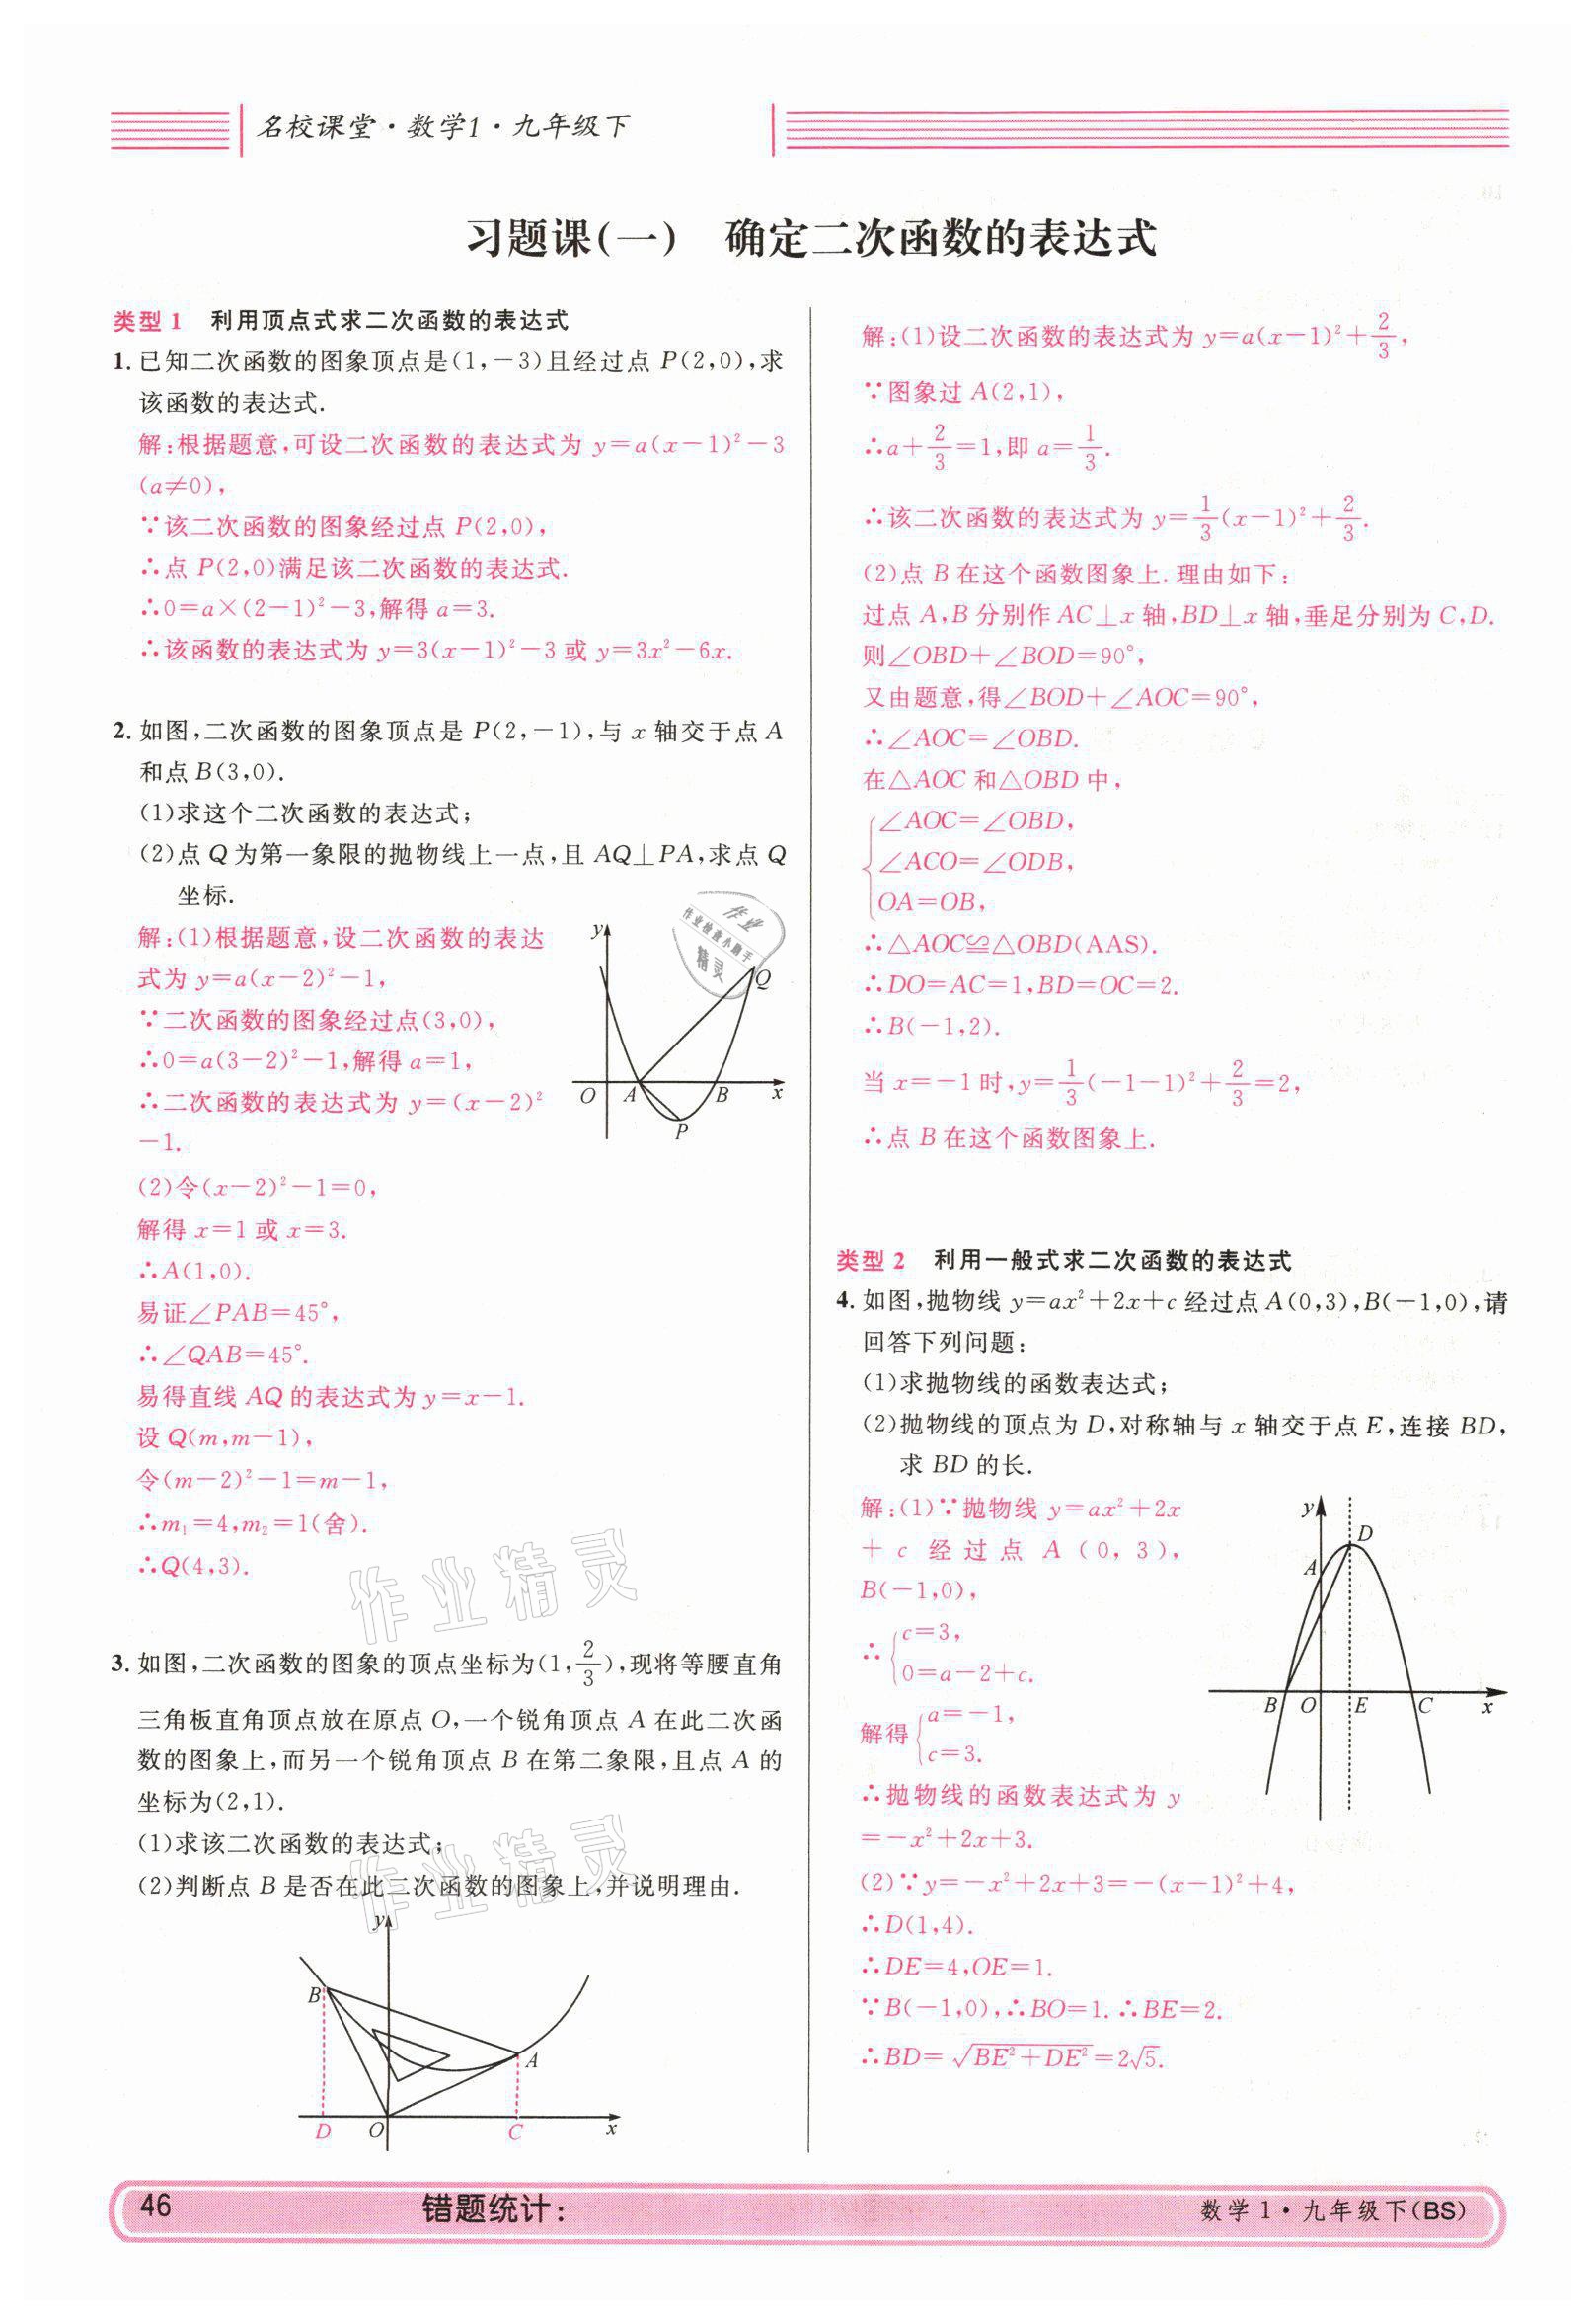 名校课堂·数学1·九年级下
习题课(一) 确定二次函数的表达式
类型1 利用顶点式求二次函数的表达式
1. 已知二次函数的图象顶点是(1,-3)且经过点 P(2,0),求
该函数的表达式.
解:根据题意,可设二次函数的表达式为 y=a(x-1)²-3
(a≠0),
∵该二次函数的图象经过点 P(2,0),
∴点 P(2,0)满足该二次函数的表达式.
∴0=a×(2-1)²-3,解得 a=3.
∴该函数的表达式为 y=3(x-1)²-3 或 y=3x²-6x.
2. 如图,二次函数的图象顶点是 P(2,-1),与 x 轴交于点 A
和点 B(3,0).
(1)求这个二次函数的表达式;
(2)点 Q 为第一象限的抛物线上一点,且 AQ⊥PA,求点 Q
坐标.
解:(1)根据题意,设二次函数的表达
式为 y=a(x-2)²-1,
∵二次函数的图象经过点(3,0),
∴0=a(3-2)²-1,解得 a=1,
∴二次函数的表达式为 y=(x-2)²
-1.
(2)令(x-2)²-1=0,
解得 x=1 或 x=3.
∴A(1,0).
易证∠PAB=45°,
∴∠QAB=45°.
易得直线 AQ 的表达式为 y=x-1.
设 Q(m,m-1),
令(m-2)²-1=m-1,
∴m₁=4,m₂=1(舍).
∴Q(4,3).
y
Q
O A B x
P
作业
作业检查小助手
精灵
作业精灵
3. 如图,二次函数的图象的顶点坐标为(1,2/3),现将等腰直角
三角板直角顶点放在原点 O,一个锐角顶点 A 在此二次函
数的图象上,而另一个锐角顶点 B 在第二象限,且点 A 的
坐标为(2,1).
(1)求该二次函数的表达式;
(2)判断点 B 是否在此二次函数的图象上,并说明理由.
作业精灵
y
B
A
D O C x
解:(1)设二次函数的表达式为 y=a(x-1)²+2/3,
∵图象过 A(2,1),
∴a+2/3=1,即 a=1/3.
∴该二次函数的表达式为 y=1/3(x-1)²+2/3.
(2)点 B 在这个函数图象上.理由如下:
过点 A,B 分别作 AC⊥x 轴,BD⊥x 轴,垂足分别为 C,D.
则∠OBD+∠BOD=90°,
又由题意,得∠BOD+∠AOC=90°,
∴∠AOC=∠OBD.
在△AOC 和△OBD 中,
{∠AOC=∠OBD,
∠ACO=∠ODB,
OA=OB,
∴△AOC≌△OBD(AAS).
∴DO=AC=1,BD=OC=2.
∴B(-1,2).
当 x=-1 时,y=1/3(-1-1)²+2/3=2,
∴点 B 在这个函数图象上.
类型2 利用一般式求二次函数的表达式
4. 如图,抛物线 y=ax²+2x+c 经过点 A(0,3),B(-1,0),请
回答下列问题:
(1)求抛物线的函数表达式;
(2)抛物线的顶点为 D,对称轴与 x 轴交于点 E,连接 BD,
求 BD 的长.
解:(1)∵抛物线 y=ax²+2x
+c 经过点 A(0,3),
B(-1,0),
∴{c=3,
0=a-2+c.
解得{a=-1,
c=3.
∴抛物线的函数表达式为 y
=-x²+2x+3.
(2)∵y=-x²+2x+3=-(x-1)²+4,
∴D(1,4).
∴DE=4,OE=1.
∵B(-1,0),∴BO=1.∴BE=2.
∴BD=√(BE²+DE²)=2√5.
y
D
A
B O E C x
46 错题统计: 数学1·九年级下(BS)